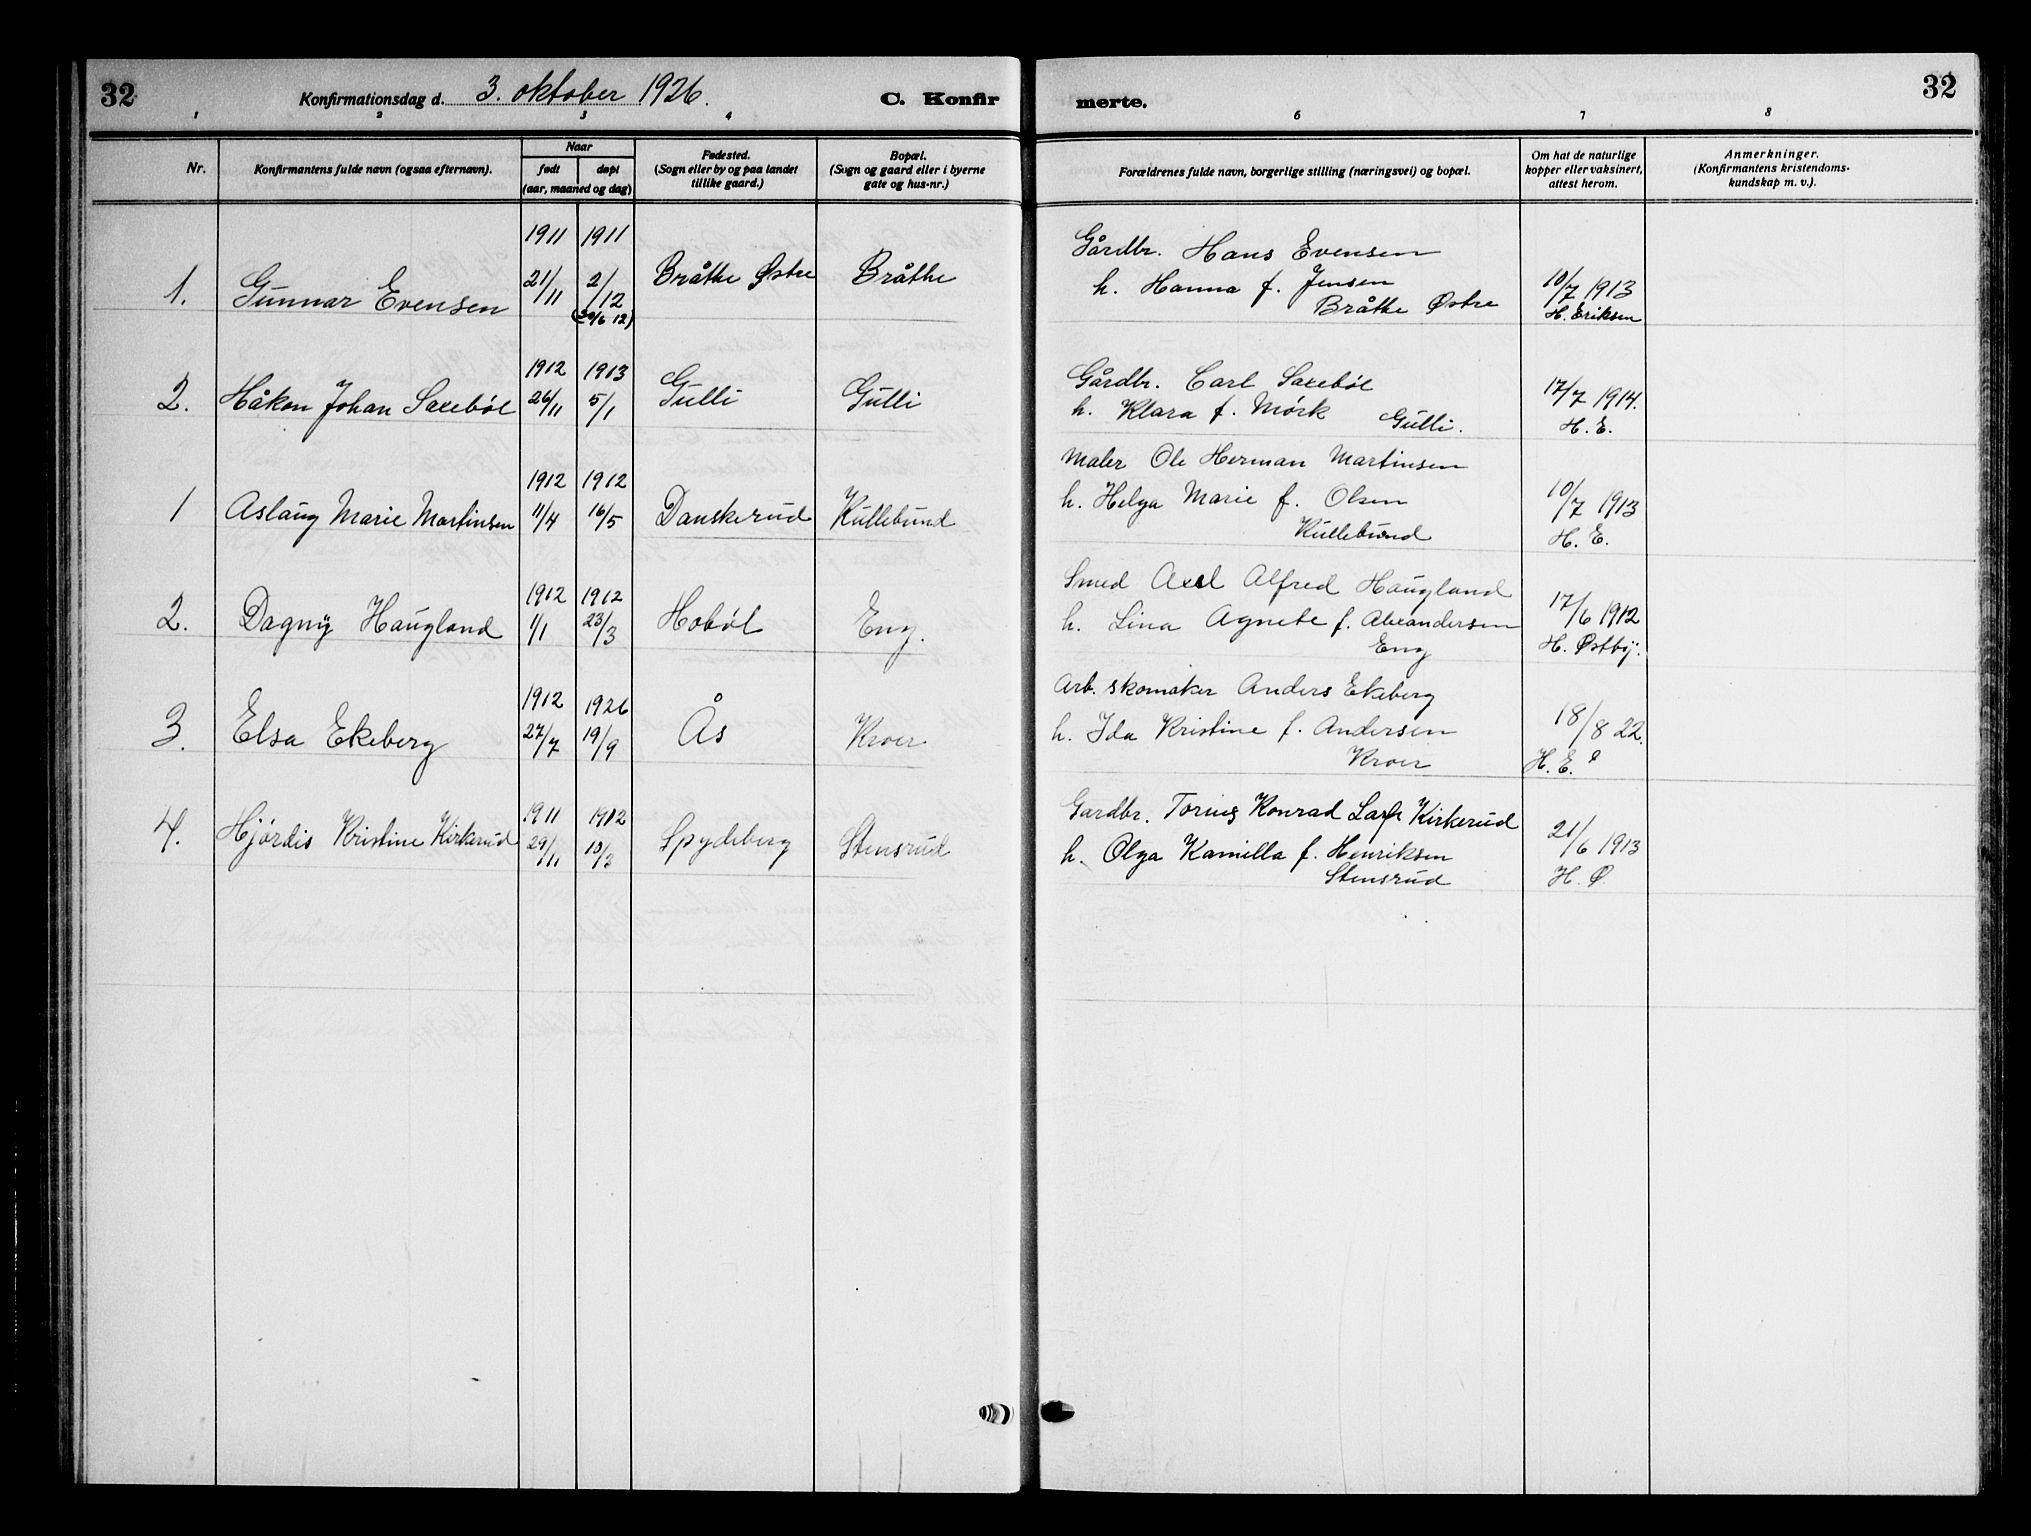 32
Konfirmationsdag d. 3. oktober 1926.
C. Konfir
merte.
32
1 2 3 4 6 7 8
Nr.
Konfirmantens fulde navn (ogsaa efternavn).
Naar
født døpt
(aar, maaned og dag)
Fødested.
(Sogn eller by og paa landet
tillike gaard.)
Bopæl.
(Sogn og gaard eller i byerne
gate og hus-nr.)
Forældrenes fulde navn, borgerlige stilling (næringsvei) og bopæl.
Om hat de naturlige
kopper eller vaksinert,
attest herom.
Anmerkninger.
(Konfirmantens kristendoms-
kundskap m. v.).
1911 1911
1. Gunnar Evensen 21/11 2/12 Bråthe Østre Bråthe
(30/6 12)
Gårdbr. Hans Evensen
h. Hanna f. Jensen 10/7 1913
Bråthe Østre H. Eriksen
1912 1913
2. Håkon Johan Saxebøl 26/11 5/1 Gulli Gulli
Gårdbr. Carl Saxebøl 17/7 1914.
h. Klara f. Mørk Gulli. H. E.
1912 1912
1 Aslaug Marie Martinsen 11/4 16/5 Danskerud Kullebund
Maler Ole Herman Martinsen
h. Helga Marie f. Olsen 10/7 1913
Kullebund H. E.
1912 1912
2. Dagny Haugland 1/1 23/3 Hobøl Eng.
Smed Axel Alfred Haugland
h. Lina Agnete f. Alexandersen 17/6 1912
Eng H. Østby.
1912 1926
3. Elsa Ekeberg 27/7 19/9 Ås Kroer
Arb. skomaker Anders Ekeberg
h. Ida Kristine f. Andersen 18/8 22.
Kroer H. E.
1911 1912
4. Hjørdis Kristine Kirkerud 29/11 10/3 Spydeberg Stensrud
Gardbr. Torius Konrad Kirkerud
h. Olga Kamilla f. Henriksen 21/6 1913
Stensrud H. Ø